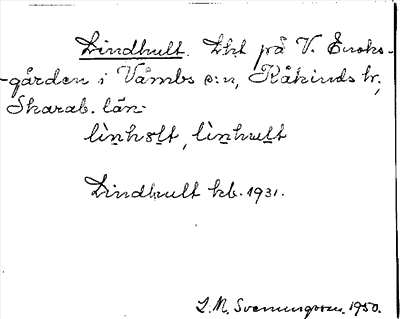 Lindhult. Lht på V. Enoks-
-gården i Våmbs s:n, Kåkinds hr,
Skarab. län.
li̠nhɤl̠t, li̠nhul̠t
Lindhult kb. 1931.
L. M. Svenungsson. 1950.